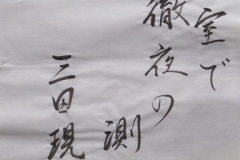 室で
徹夜の
測
三田現